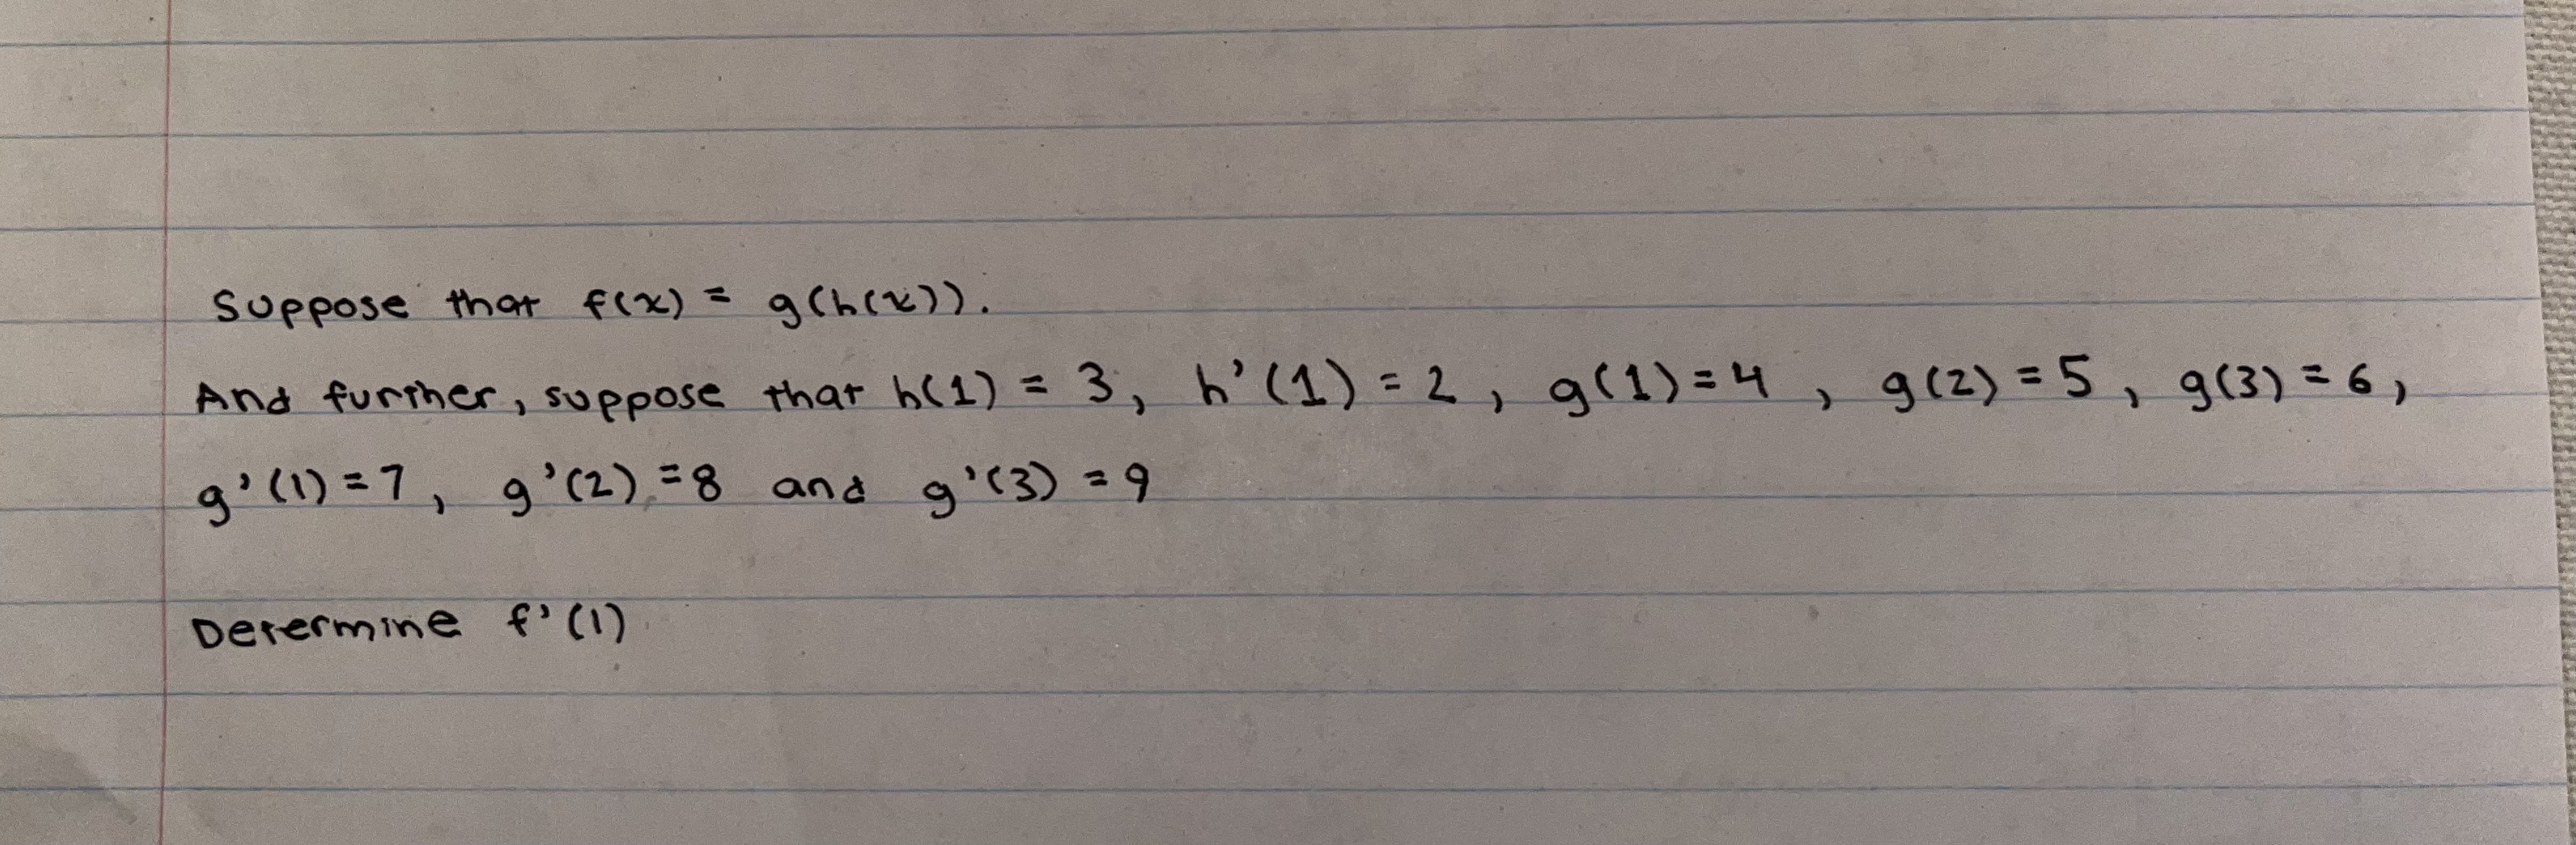 Suppose that f(x) = g(h(x)).
And further, suppose that h(1) = 3, h'(1) = 2, g(1) = 4, g(2) = 5, g(3) = 6,
g'(1) = 7, g'(2) = 8 and g'(3) = 9
Determine f'(1)